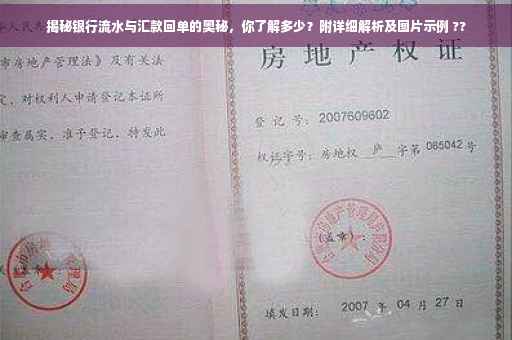 揭秘银行流水与汇款回单的奥秘，你了解多少？附详细解析及图片示例 ??
市房地产管理法》及有关法
定，对权利人申请登记本证所
审查属实，准予登记，特发此
房地产权证
登 记 号： 2007609602
权证字号：房地权 庐 字第 065042 号
(盖章)：
填发日期： 2007 年 04 月 27 日